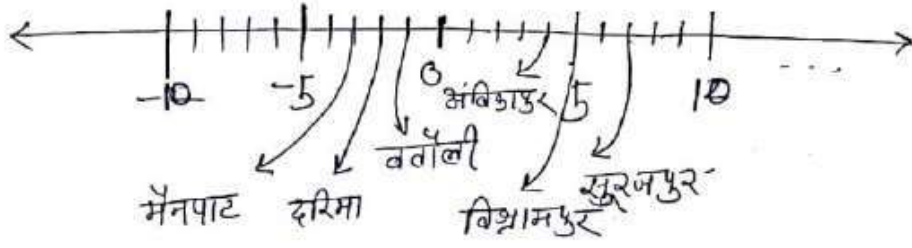 -10 -5 0 5 10 ...
अंबिकापुर
मैनपाट दरिमा बतौली विश्रामपुर सूरजपुर